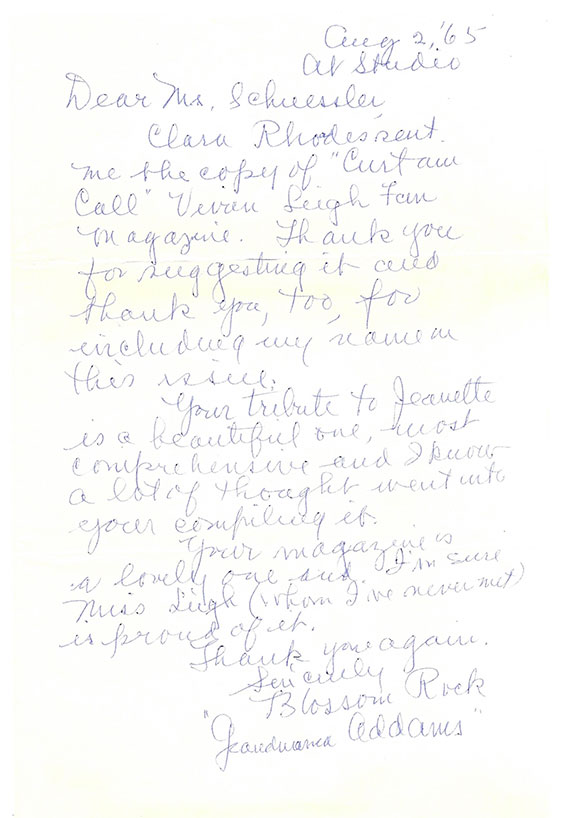 Aug 2, '65
At Studio
Dear Ms. Schuessler,
Clara Rhodes sent
me the copy of "Curtain
Call" Vivien Leigh Fan
Magazine. Thank you
for suggesting it and
thank you, too, for
including my name in
this issue.
Your tribute to Jeanette
is a beautiful one, most
comprehensive and I know
a lot of thought went into
your compiling it.
Your magazine is
a lovely one and I'm sure
Miss Leigh (whom I've never met)
is proud of it.
Thank you again.
Sincerely
Blossom Rock
"Grandmama Addams"